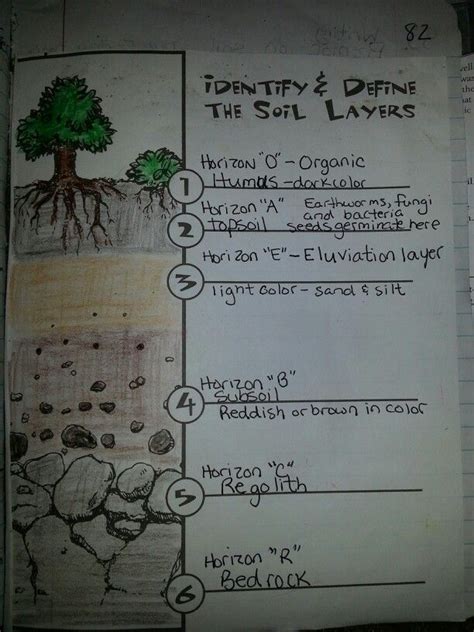 82
IDENTIFY & DEFINE
THE SOIL LAYERS
Horizon "O" - Organic
1 Humas - dark color
Horizon "A" Earthworms, fungi
and bacteria
2 topsoil seeds germinate here
Horizon "E" - Eluviation layer
3
light color - sand & silt
Horizon "B"
4 Subsoil
Reddish or brown in color
Horizon "C"
5 Regolith
Horizon "R"
6 Bedrock